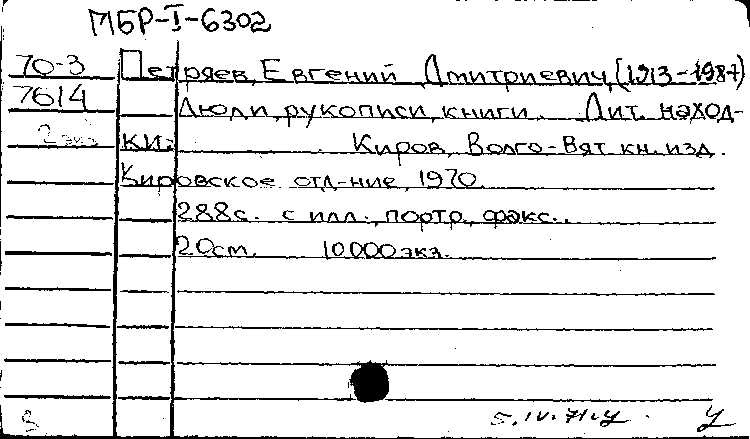 МБР-I-6302
70-3 Петряев, Евгений Дмитриевич, (1913-1987)
7614 Люди, рукописи, книги. Лит. наход-
2 экз ки. Киров, Волго-Вят. кн. изд.
Кировское отд-ние, 1970.
288с. с илл., портр., факс..
20см. 10000 экз.
5.IV.71г. У